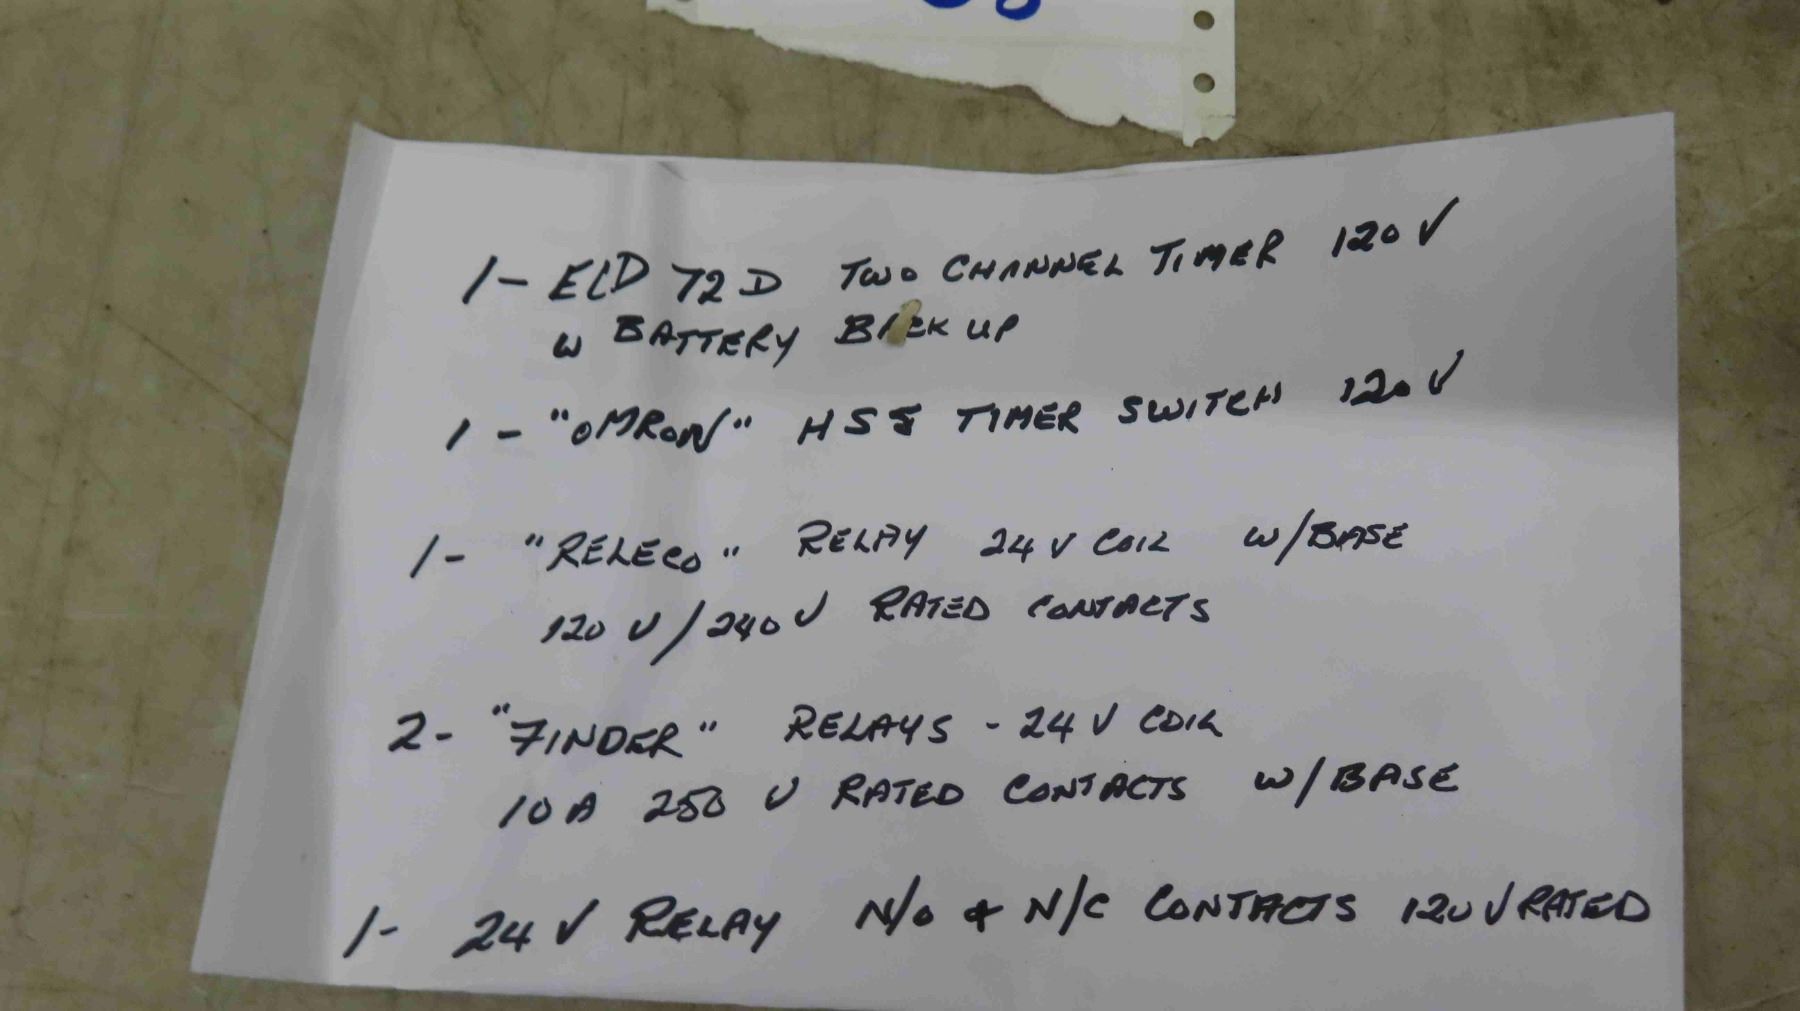 1- ELD 72D TWO CHANNEL TIMER 120V
W BATTERY BACK UP
1- "OMRON" H5S TIMER SWITCH 120V
1- "RELECO" RELAY 24V COIL W/BASE
120V/240V RATED CONTACTS
2- "FINDER" RELAYS - 24V COIL
10A 250V RATED CONTACTS W/BASE
1- 24V RELAY N/O & N/C CONTACTS 120V RATED